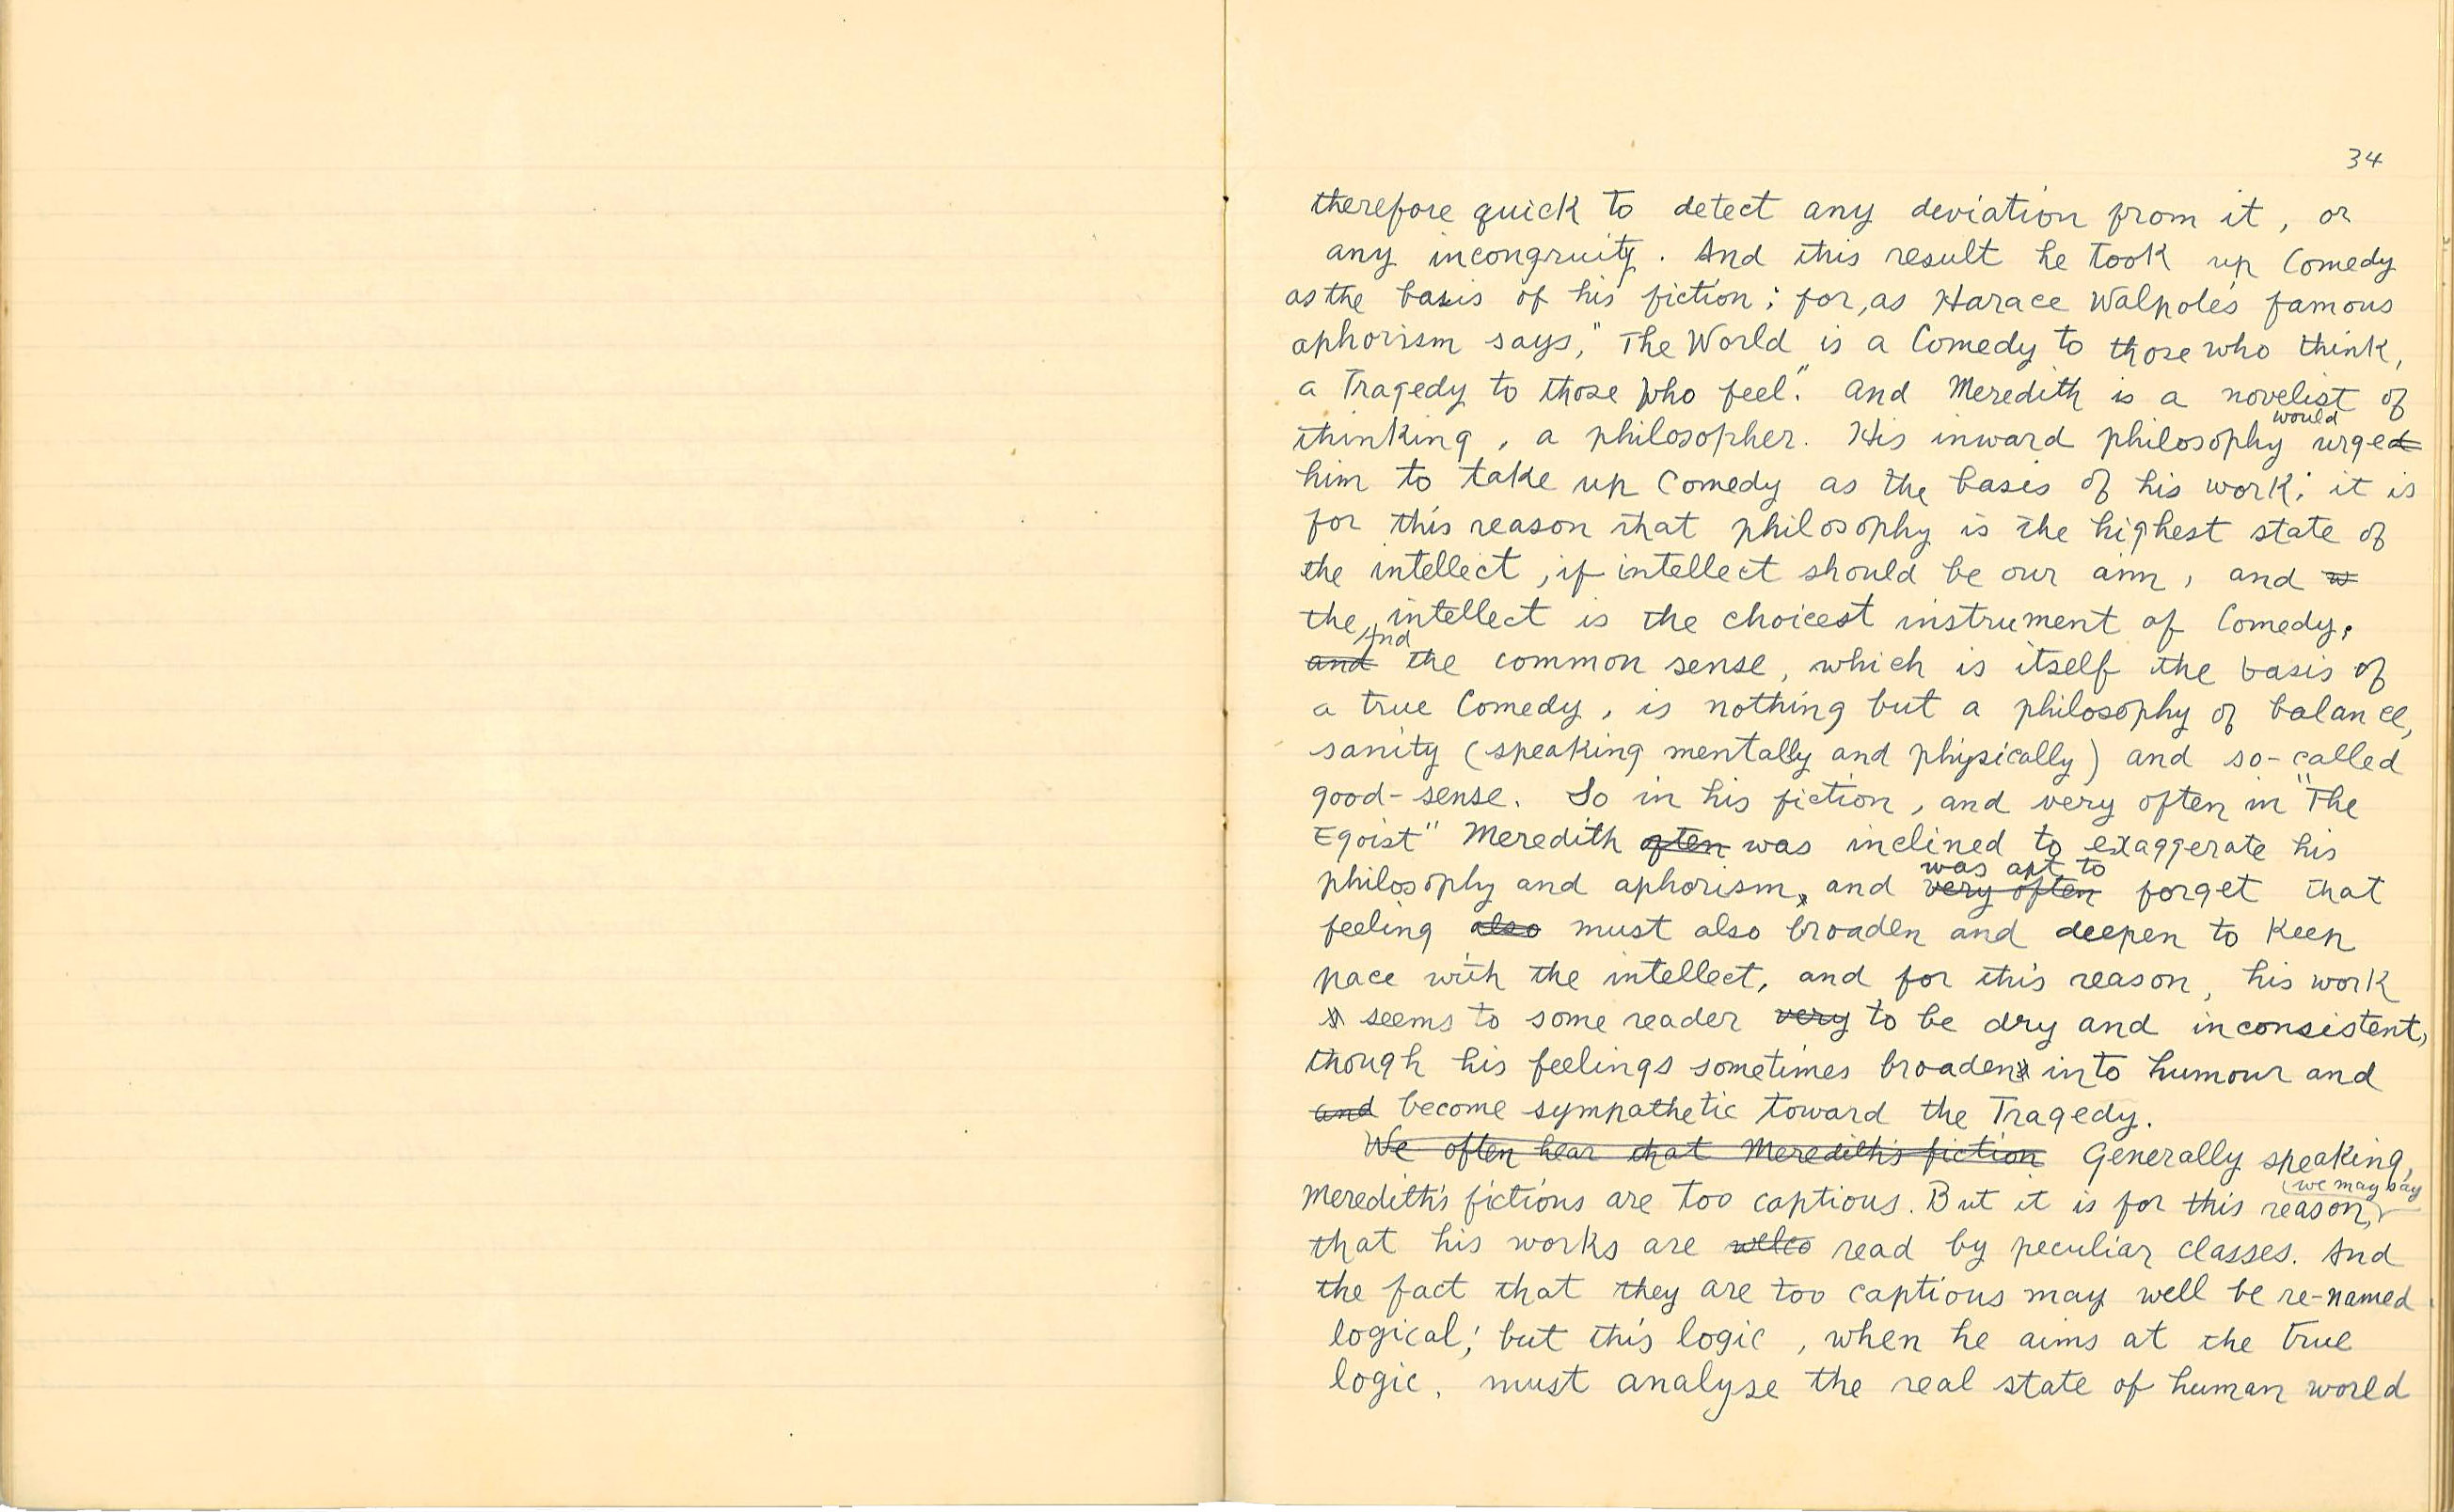 34
therefore quick to detect any deviation from it, or
any incongruity. And this result he took up Comedy
as the basis of his fiction; for, as Harace Walpole's famous
aphorism says, "The World is a Comedy to those who think,
a Tragedy to those who feel." And Meredith is a novelist of
would
thinking, a philosopher. His inward philosophy urged
him to take up Comedy as the basis of his work; it is
for this reason that philosophy is the highest state of
the intellect, if intellect should be our aim, and w
the intellect is the choicest instrument of Comedy.
And
and the common sense, which is itself the basis of
a true Comedy, is nothing but a philosophy of balance,
sanity (speaking mentally and physically) and so-called
good-sense. So in his fiction, and very often in "The
Egoist" Meredith often was inclined to exaggerate his
was apt to
philosophy and aphorism, and very often forget that
feeling also must also broaden and deepen to keep
pace with the intellect, and for this reason, his work
s seems to some reader very to be dry and inconsistent,
though his feelings sometimes broadens into humour and
and become sympathetic toward the Tragedy.
We often hear that Meredith's fiction Generally speaking,
we may say
Meredith's fictions are too captious. But it is for this reason,
that his works are welco read by peculiar classes. And
the fact that they are too captious may well be re-named
logical; but this logic, when he aims at the true
logic, must analyse the real state of human world